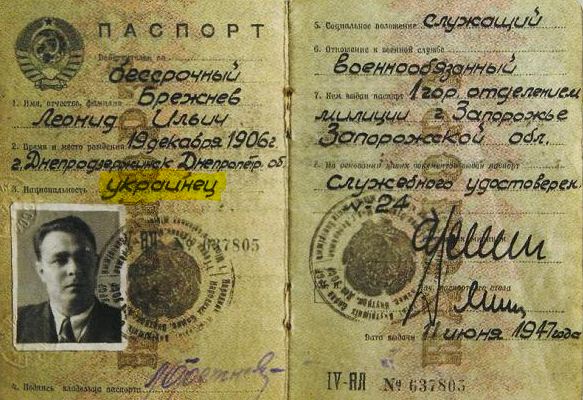 ПАСПОРТ
Действителен по
бессрочный
1. Имя, отчество, фамилия Брежнев
Леонид Ильич
2. Время и место рождения 19 декабря 1906г.
г. Днепродзержинск Днепропетр. об.
3. Национальность украинец
IV-ЯЛ № 637805
4. Подпись владельца паспорта
5. Социальное положение служащий
6. Отношение к военной службе
военнообязанный
7. Кем выдан паспорт 1 гор. отделением
милиции г. Запорожье
Запорожской обл.
8. На основании каких документов выдан паспорт
Служебного удостоверен
V-24
Нач. паспортного стола
11 июня 1947 года
Дата выдачи
IV-ЯЛ № 637805